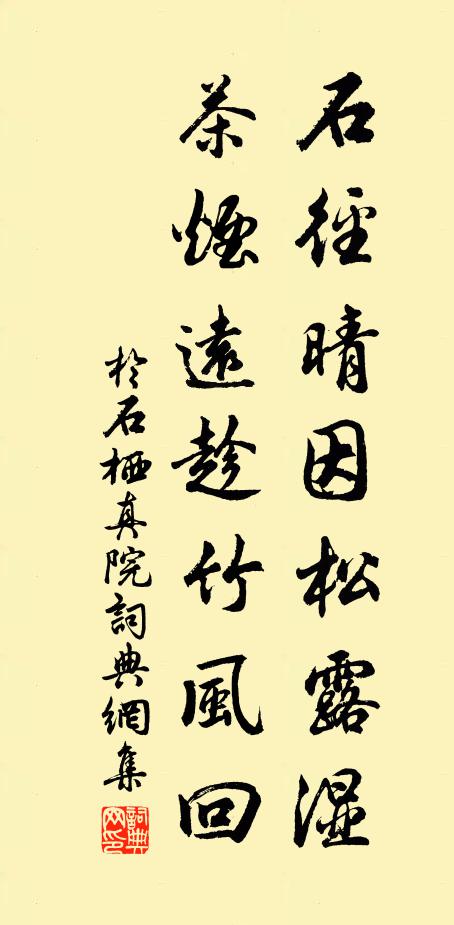 石徑晴因松露濕
茶煙遠趁竹風回
於石栖真院詞典網集
詞典网印